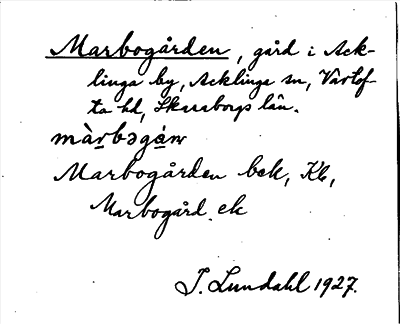 Marbogården, gård i Ack-
linga by, Acklinga sn, Vartof-
ta hd, Skaraborgs län.
màrbogán
Marbogården bek, Kb,
Marbogård. ek
I. Lundahl 1927.